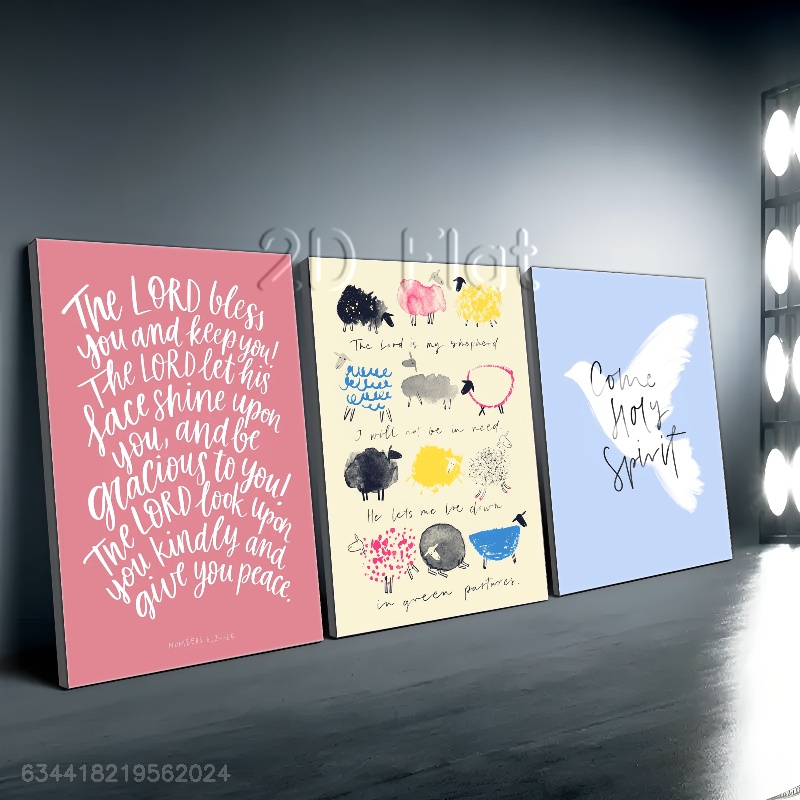 2D Flat
The LORD bless
you and keep you!
The LORD let his
face shine upon
you, and be
gracious to you!
The LORD look upon
you kindly and
give you peace.
NUMBERS 6:24-26
The Lord is my shepherd
I will not be in need.
He lets me lie down
in green pastures.
Come
Holy
Spirit
634418219562024